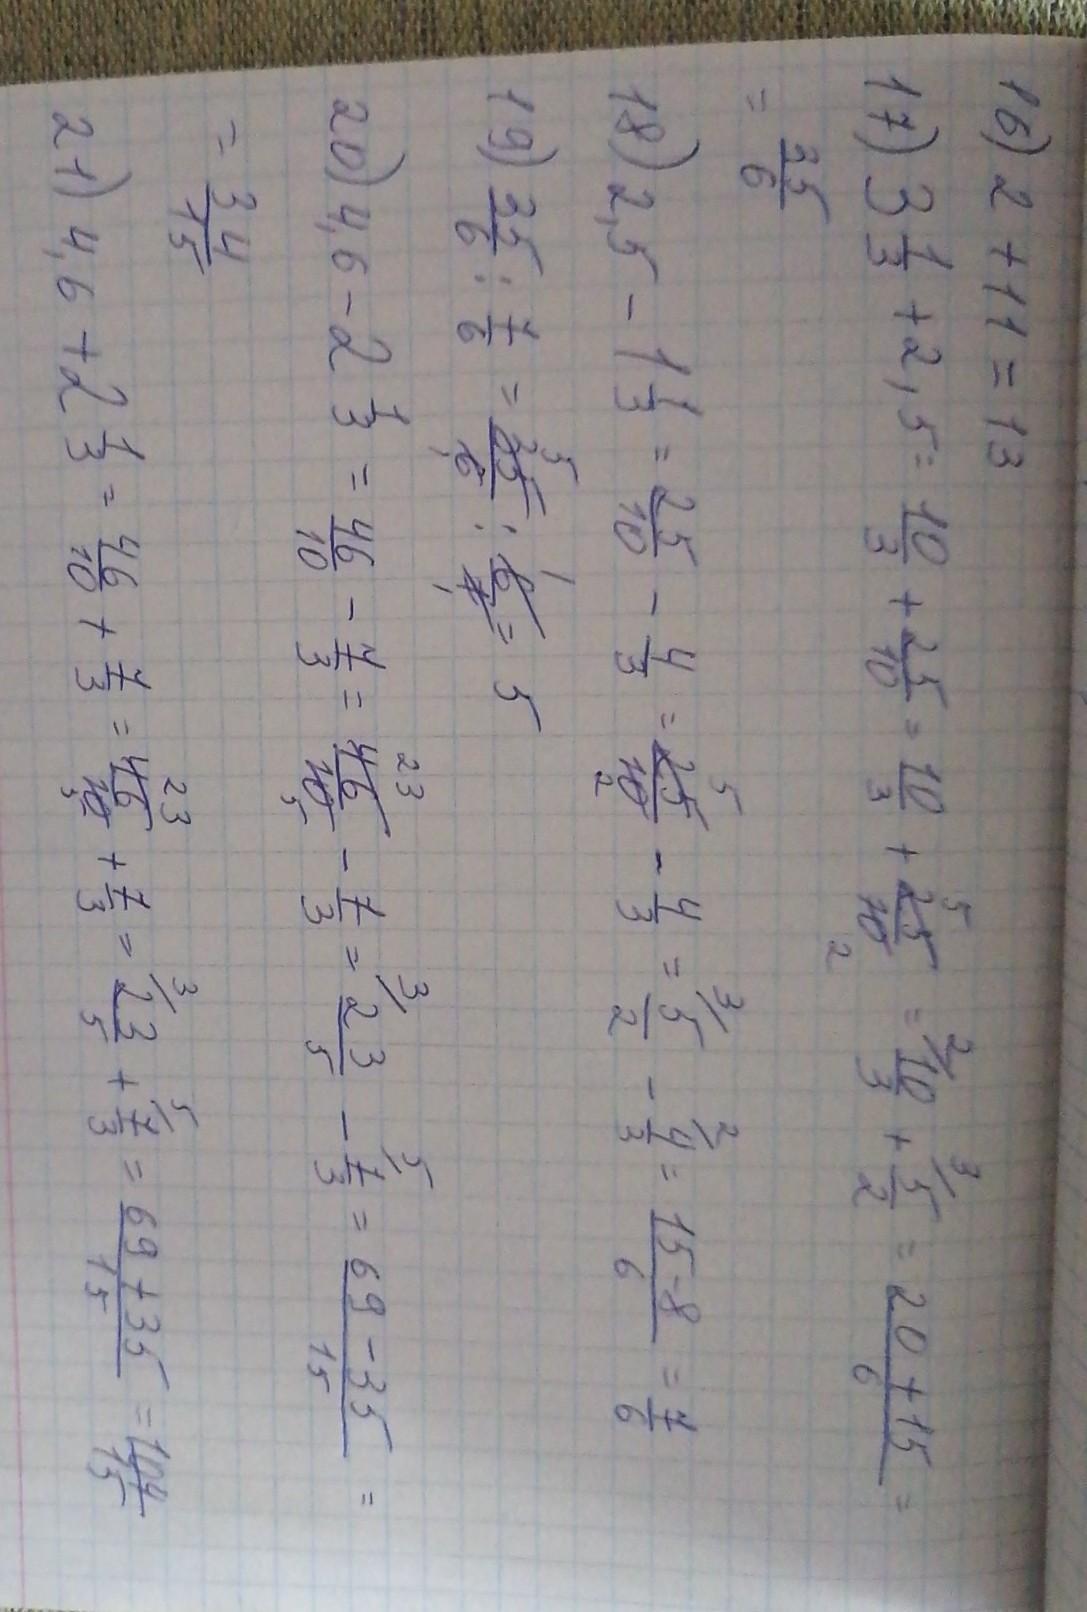 16) 2 + 11 = 13
17) 3 1/3 + 2,5 = 10/3 + 25/10 = 10/3 + 25/10 5 2 = 2/ 10/3 + 3/ 5/2 = 20 + 15 / 6 =
= 35/6
18) 2,5 - 1 1/3 = 25/10 - 4/3 = 25/10 5 2 - 4/3 = 3/ 5/2 - 2/ 4/3 = 15 - 8 / 6 = 7/6
19) 35/6 : 7/6 = 35/6 5 1 : 6/7 1 1 = 5
20) 4,6 - 2 1/3 = 46/10 - 7/3 = 46/10 23 5 - 7/3 = 3/ 23/5 - 5/ 7/3 = 69 - 35 / 15 =
= 34/15
21) 4,6 + 2 1/3 = 46/10 + 7/3 = 46/10 23 5 + 7/3 = 3/ 23/5 + 5/ 7/3 = 69 + 35 / 15 = 104/15